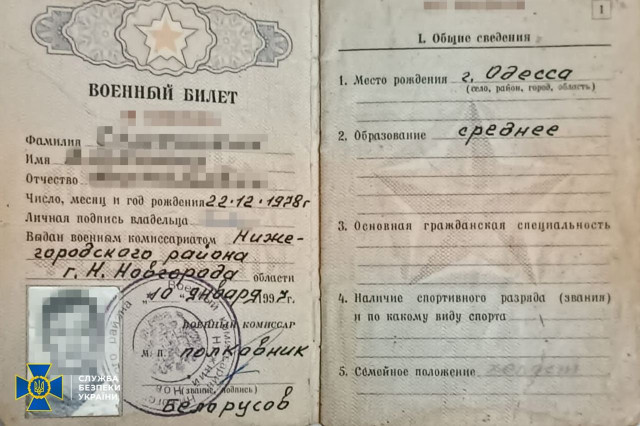 ВОЕННЫЙ БИЛЕТ
Фамилия
Имя
Отчество
Число, месяц и год рождения 22.12.1978г
Личная подпись владельца
Выдан военным комиссариатом Ниже-
городского района
г. Н. Новгорода области
"10" января 1997г.
ВОЕННЫЙ КОМИССАР
М. П. полковник
(звание, подпись)
Белорусов
СЛУЖБА
БЕЗПЕКИ
УКРАЇНИ
1
I. Общие сведения
1. Место рождения г. Одесса
(село, район, город, область)
2. Образование среднее
3. Основная гражданская специальность
4. Наличие спортивного разряда (звания)
и по какому виду спорта
5. Семейное положение холост